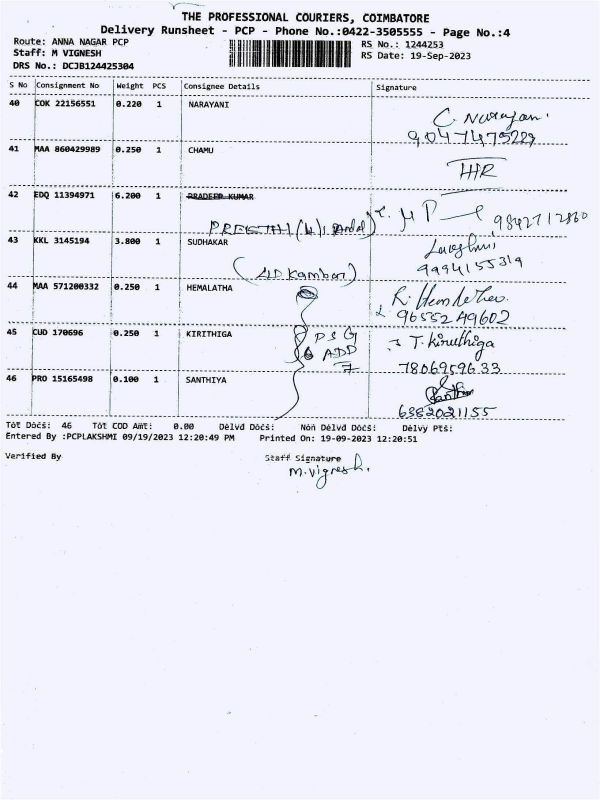 THE PROFESSIONAL COURIERS, COIMBATORE
Delivery Runsheet - PCP - Phone No.:0422-3505555 - Page No.:4
Route: ANNA NAGAR PCP RS No.: 1244253
Staff: M VIGNESH RS Date: 19-Sep-2023
DRS No.: DCJB124425304
S No Consignment No Weight PCS Consignee Details Signature
40 COK 22156551 0.220 1 NARAYANI C. Narayani
9047475229
41 MAA 860429989 0.250 1 CHAMU
42 EDQ 11394971 6.200 1 PRADEEP KUMAR
9842712860
43 KKL 3145194 3.800 1 SUDHAKAR
9994155319
44 MAA 571200332 0.250 1 HEMALATHA
9655249602
45 CUD 170696 0.250 1 KIRITHIGA PSG T. Kiruthiga
ADD
7
7806959633
46 PRO 15165498 0.100 1 SANTHIYA
6382021155
Tot Docs: 46 Tot COD Amt: 0.00 Delvd Docs: Non Delvd Docs: Delvy Pts:
Entered By :PCPLAKSHMI 09/19/2023 12:20:49 PM Printed On: 19-09-2023 12:20:51
Verified By Staff Signature
M. Vignesh.